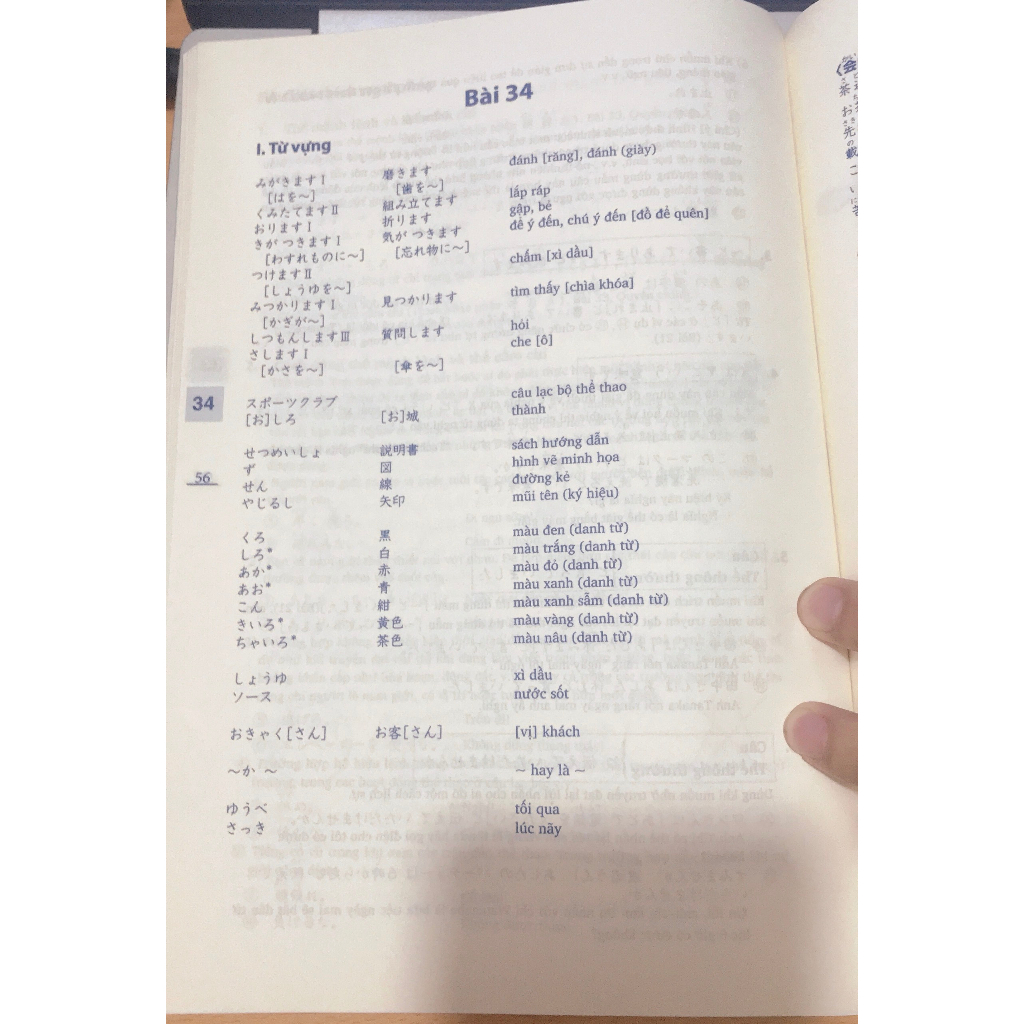 Bài 34
I. Từ vựng
みがきますⅠ 磨きます đánh [răng], đánh (giày)
[はを～] [歯を～]
くみたてますⅡ 組み立てます lắp ráp
おりますⅠ 折ります gập, bẻ
きが つきますⅠ 気が つきます để ý đến, chú ý đến [đồ để quên]
[わすれものに～] [忘れ物に～]
つけますⅡ chấm [xì dầu]
[しょうゆを～]
みつかりますⅠ 見つかります tìm thấy [chìa khóa]
[かぎが～]
しつもんしますⅢ 質問します hỏi
さしますⅠ che [ô]
[かさを～] [傘を～]
スポーツクラブ câu lạc bộ thể thao
[お]しろ [お]城 thành
せつめいしょ 説明書 sách hướng dẫn
ず 図 hình vẽ minh họa
せん 線 đường kẻ
やじるし 矢印 mũi tên (ký hiệu)
くろ 黒 màu đen (danh từ)
しろ* 白 màu trắng (danh từ)
あか* 赤 màu đỏ (danh từ)
あお* 青 màu xanh (danh từ)
こん 紺 màu xanh sẫm (danh từ)
きいろ* 黄色 màu vàng (danh từ)
ちゃいろ* 茶色 màu nâu (danh từ)
しょうゆ xì dầu
ソース nước sốt
おきゃく[さん] お客[さん] [vị] khách
～か ～ ~ hay là ~
ゆうべ tối qua
さっき lúc nãy
34
56